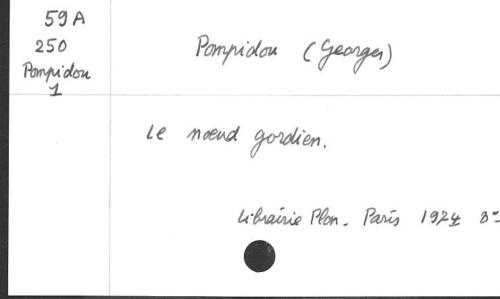 59A
250
Pompidou
1
Pompidou (Georges)
Le nœud gordien.
Librairie Plon. Paris 1974 8°